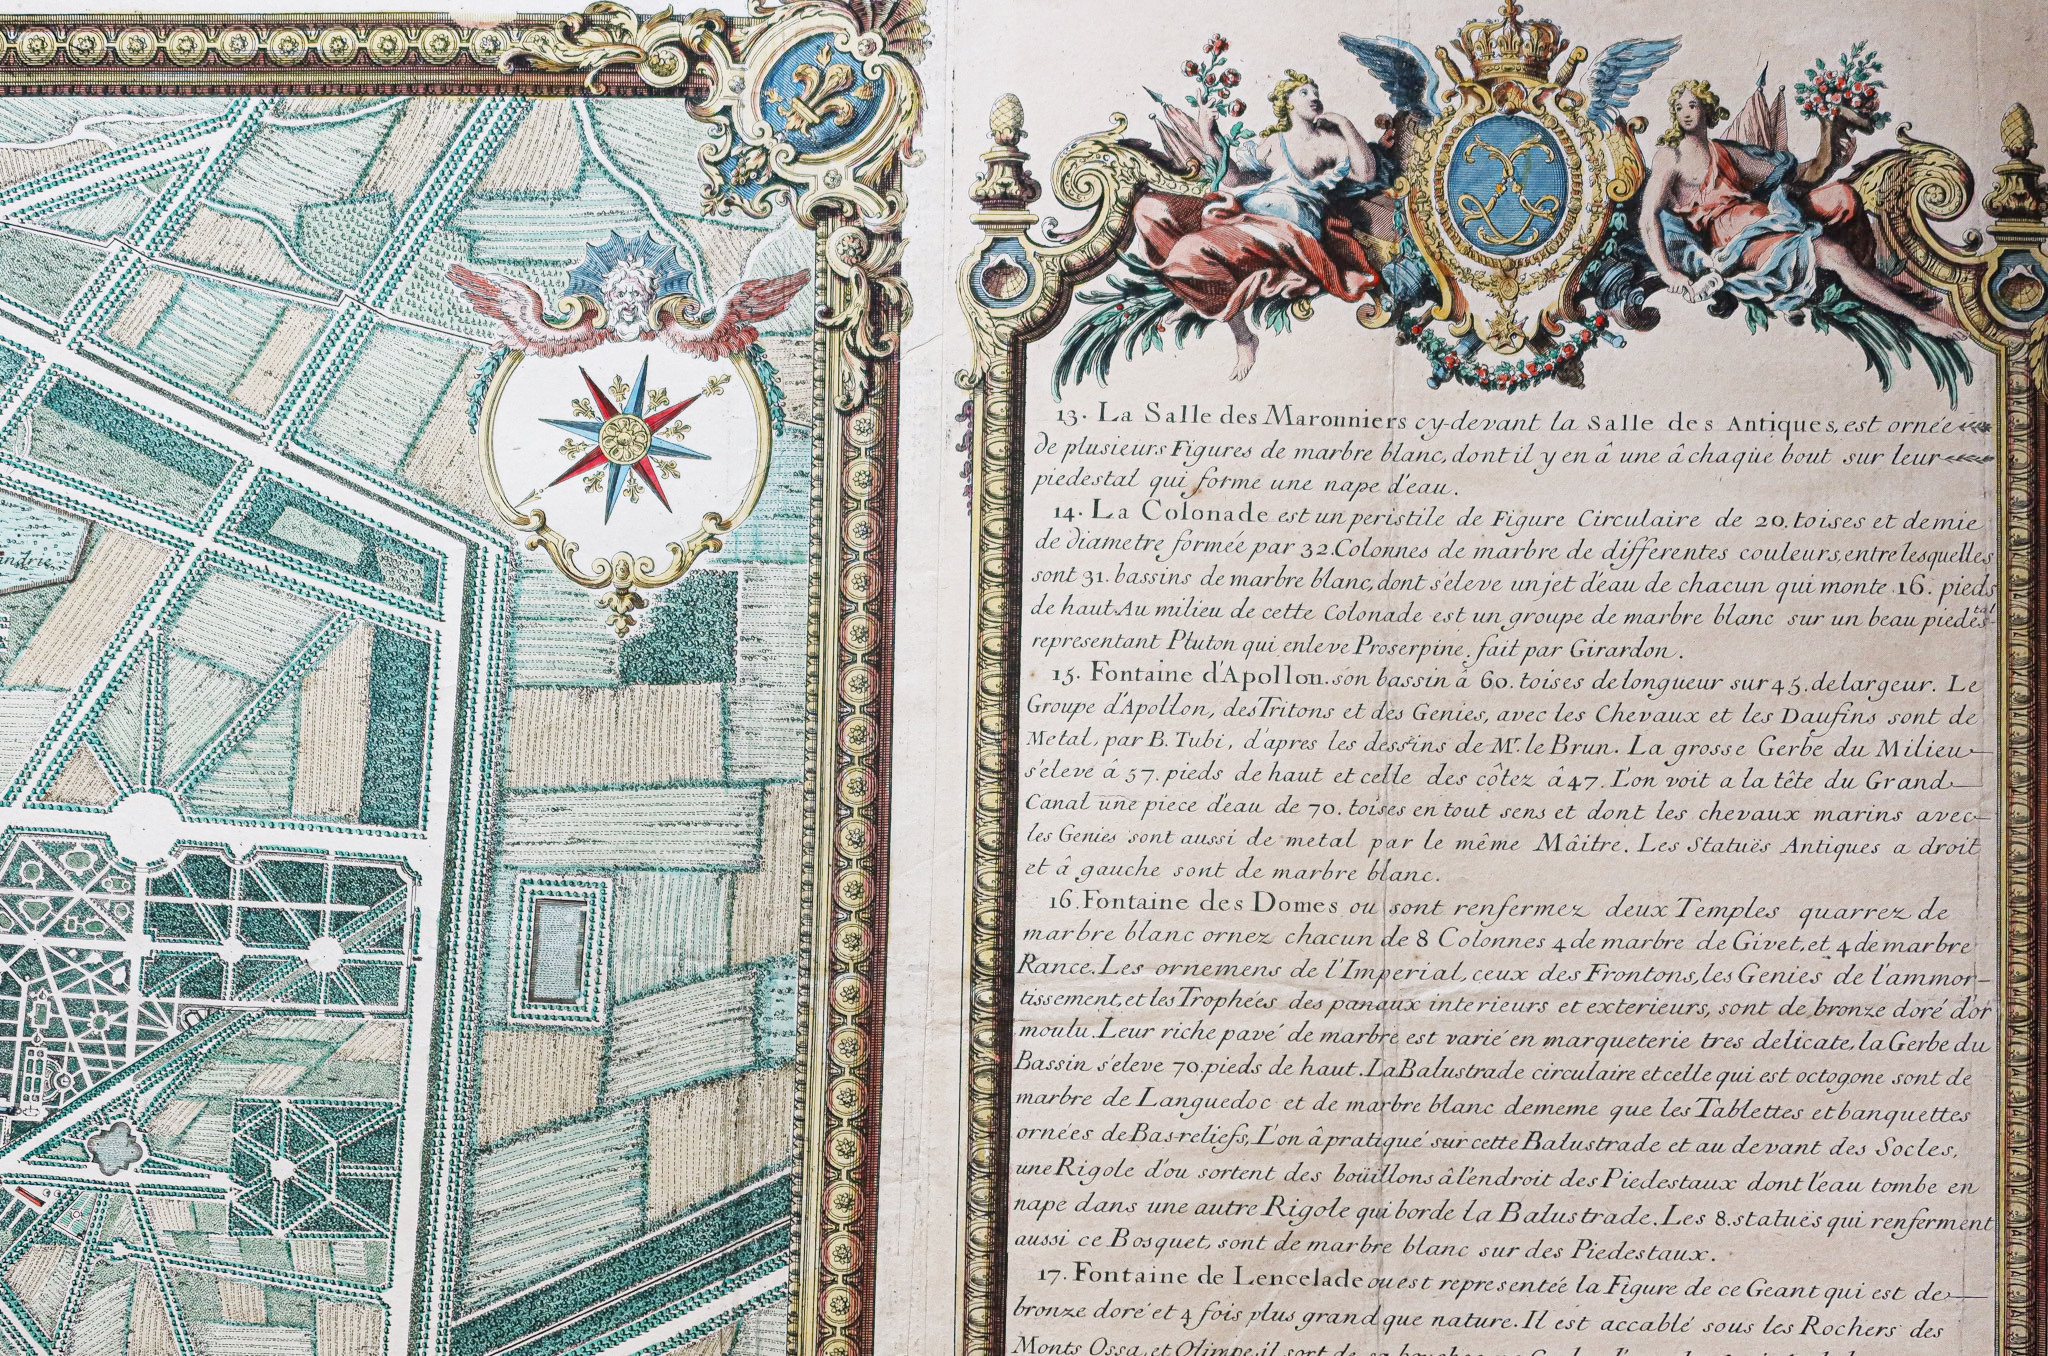 andrie
13. La Salle des Maronniers cy-devant la Salle des Antiques, est ornée
de plusieurs Figures de marbre blanc, dont il y en â une â chaqüe bout sur leur
piedestal qui forme une nape d'eau.
14. La Colonade est un peristile de Figure Circulaire de 20. toises et demie
de diametre formée par 32. Colonnes de marbre de differentes couleurs, entre lesquelles
sont 31. bassins de marbre blanc, dont s'eleve un jet d'eau de chacun qui monte 16. pieds
de haut. Au milieu de cette Colonade est un groupe de marbre blanc sur un beau piedestal
representant Pluton qui enleve Proserpine, fait par Girardon.
15. Fontaine d'Apollon. son bassin à 60. toises de longueur sur 45. de largeur. Le
Groupe d'Apollon, des Tritons et des Genies, avec les Chevaux et les Daufins sont de
Metal, par B. Tubi, d'apres les dessins de Mr. le Brun. La grosse Gerbe du Milieu
s'eleve â 57. pieds de haut et celle des côtez â 47. L'on voit a la tête du Grand
Canal une piece d'eau de 70. toises en tout sens et dont les chevaux marins avec
les Genies sont aussi de metal par le même Mâitre. Les Statuës Antiques a droit
et â gauche sont de marbre blanc.
16. Fontaine des Domes ou sont renfermez deux Temples quarrez de
marbre blanc ornez chacun de 8 Colonnes 4 de marbre de Givet, et 4 de marbre
Rance. Les ornemens de l'Imperial, ceux des Frontons, les Genies de l'ammor-
tissement, et les Trophées des panaux interieurs et exterieurs, sont de bronze doré d'or
moulu. Leur riche pavé de marbre est varié en marqueterie tres delicate, la Gerbe du
Bassin s'eleve 70. pieds de haut. La Balustrade circulaire et celle qui est octogone sont de
marbre de Languedoc et de marbre blanc dememe que les Tablettes et banquettes
ornées de Bas-reliefs, L'on â pratiqué sur cette Balustrade et au devant des Socles,
une Rigole d'ou sortent des boüillons â l'endroit des Piedestaux dont l'eau tombe en
nape dans une autre Rigole qui borde la Balustrade. Les 8. statuës qui renferment
aussi ce Bosquet, sont de marbre blanc sur des Piedestaux.
17. Fontaine de Lencelade ou est representée la Figure de ce Geant qui est de
bronze doré et 4 fois plus grand que nature. Il est accablé sous les Rochers des
Monts Ossa, et Olimpe, il sort de sa bouche